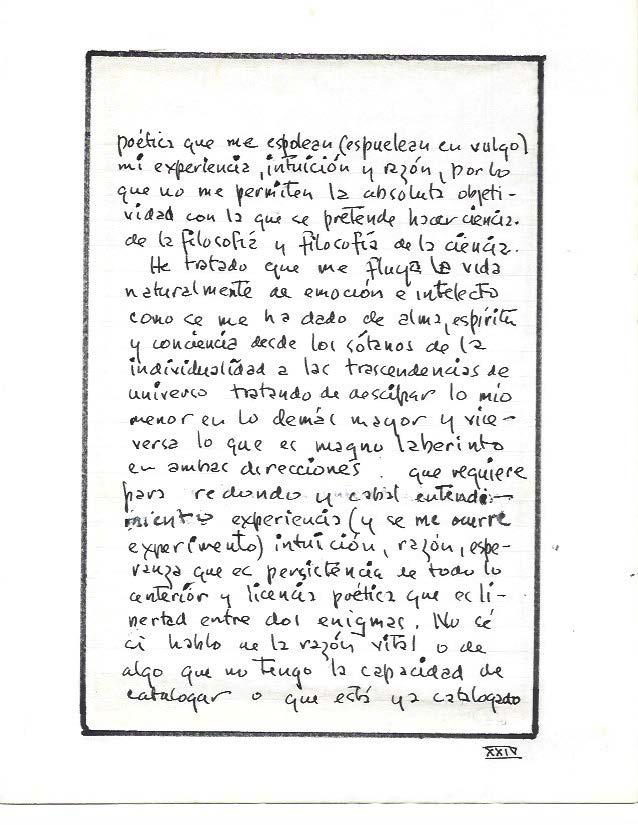 poética que me espolean (espuelean en vulgo)
mi experiencia, intuición y razón, por lo
que no me permiten la absoluta objeti-
vidad con la que se pretende hacer ciencia.
de la filosofía y filosofía de la ciencia.
He tratado que me fluya la vida
naturalmente de emoción e intelecto
como se me ha dado de alma, espíritu
y conciencia desde los sótanos de la
individualidad a las trascendencias de
universo tratando de descifrar lo mío
menor en lo demás mayor y vice-
versa lo que es magno laberinto
en ambas direcciones. que requiere
para redondo y cabal entendi-
miento experiencia (y se me ocurre
experimento) intuición, razón, espe-
ranza que es persistencia de todo lo
anterior y licencia poética que es li-
bertad entre dos enigmas. No sé
si hablo de la razón vital o de
algo que no tengo la capacidad de
catalogar o que está ya catalogado
XXIV